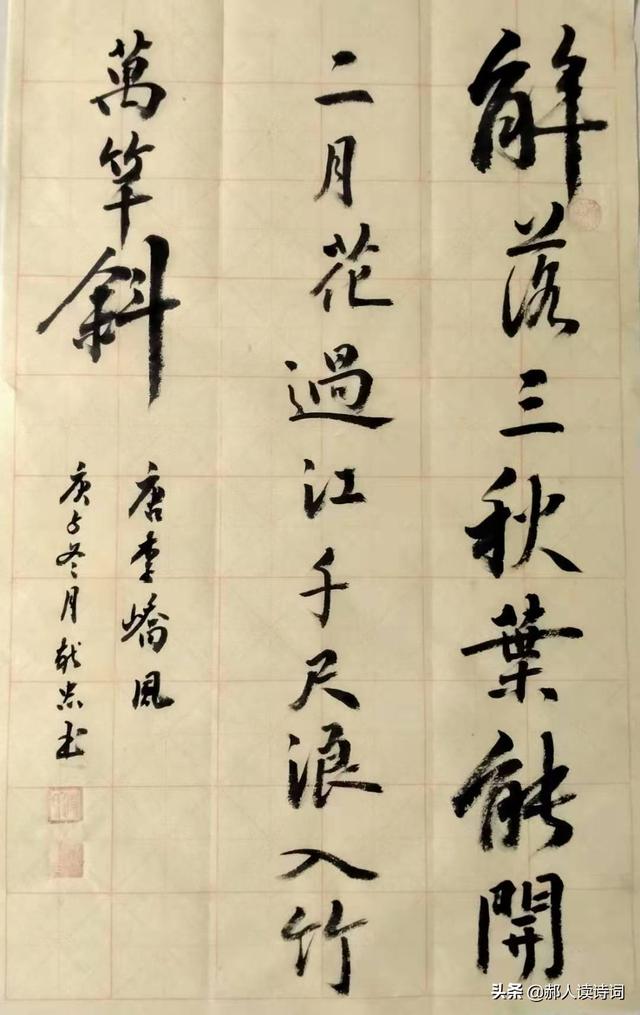 解落三秋葉能開
二月花過江千尺浪入竹
萬竿斜
唐李嶠風
庚子冬月献忠书
头条 @郝人读诗词